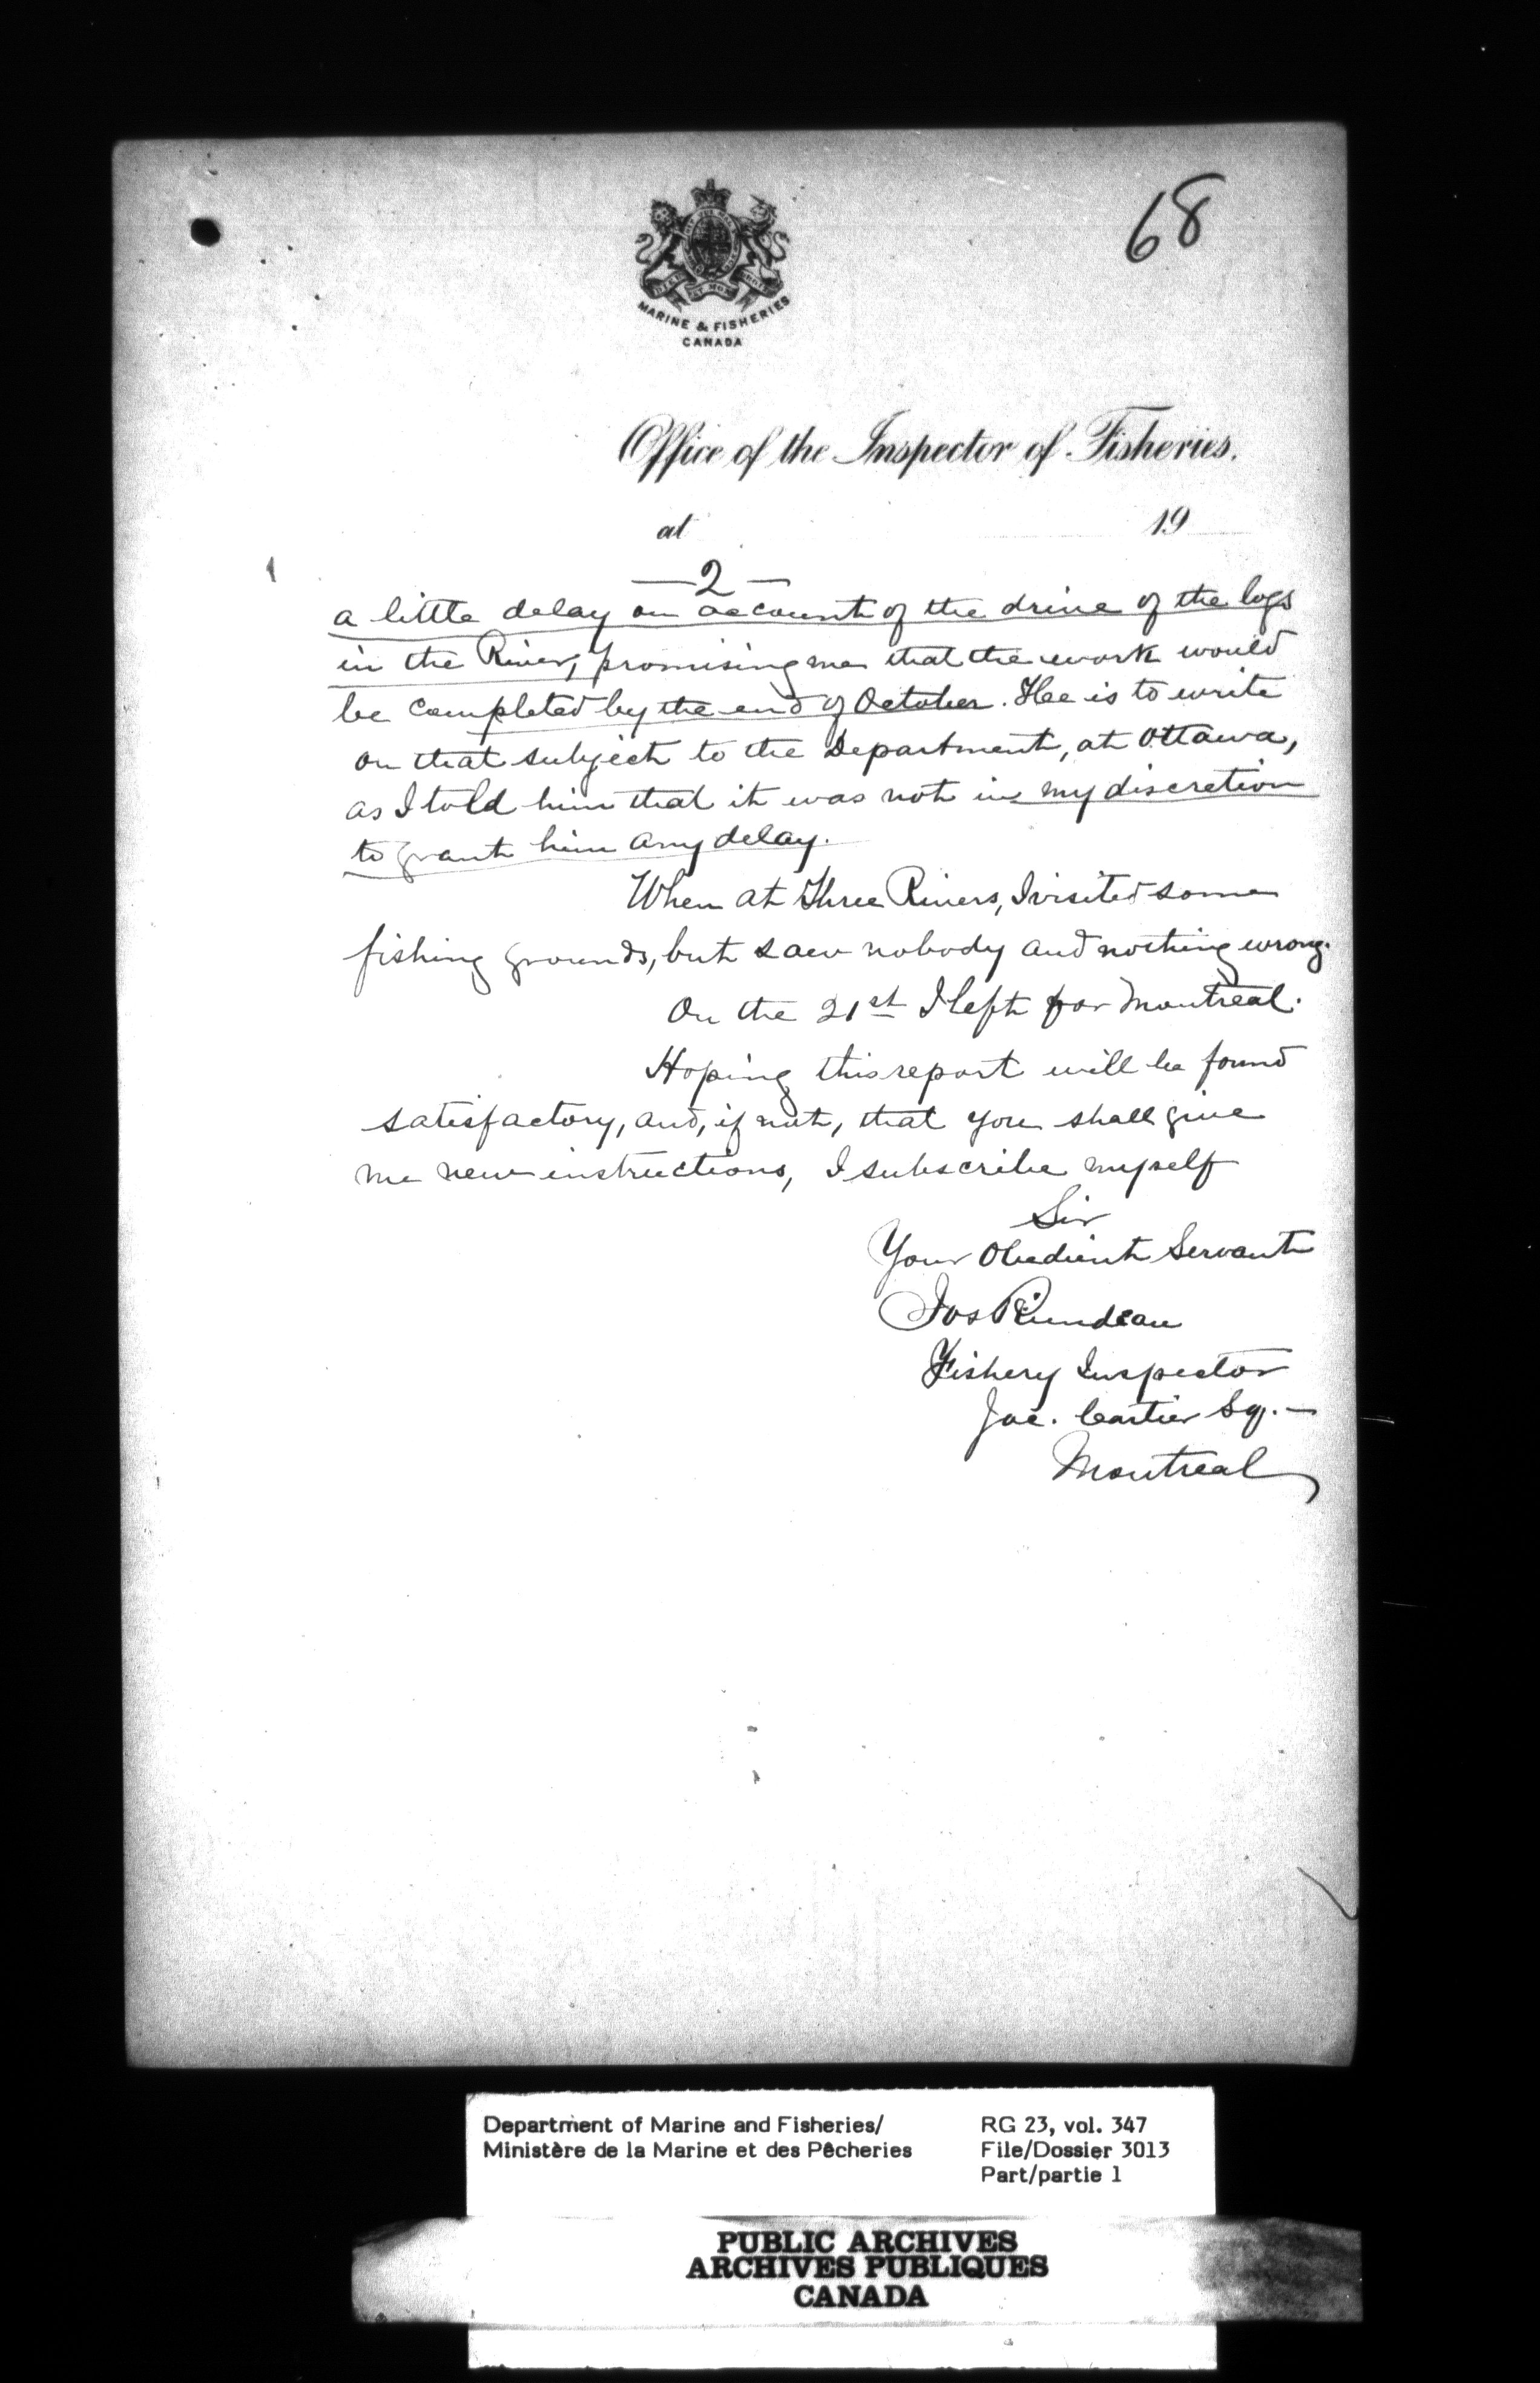 68
MARINE & FISHERIES
CANADA
Office of the Inspector of Fisheries.
at 19
— 2 —
a little delay on account of the drive of the logs
in the River, promising me that the work would
be completed by the end of October. Hee is to write
on that subject to the Department, at Ottawa,
as I told him that it was not in my discretion
to grant him any delay.
When at Three Rivers, I visited some
fishing grounds, but saw nobody and nothing wrong.
On the 21st I left for Montreal.
Hoping this report will be found
satisfactory, and, if not, that you shall give
me new instructions, I subscribe myself
Sir
Your Obedient Servant
Jos Riendeau
Fishery Inspector
Jac. Cartier Sq. —
Montreal
Department of Marine and Fisheries/ RG 23, vol. 347
Ministère de la Marine et des Pêcheries File/Dossier 3013
Part/partie 1
PUBLIC ARCHIVES
ARCHIVES PUBLIQUES
CANADA